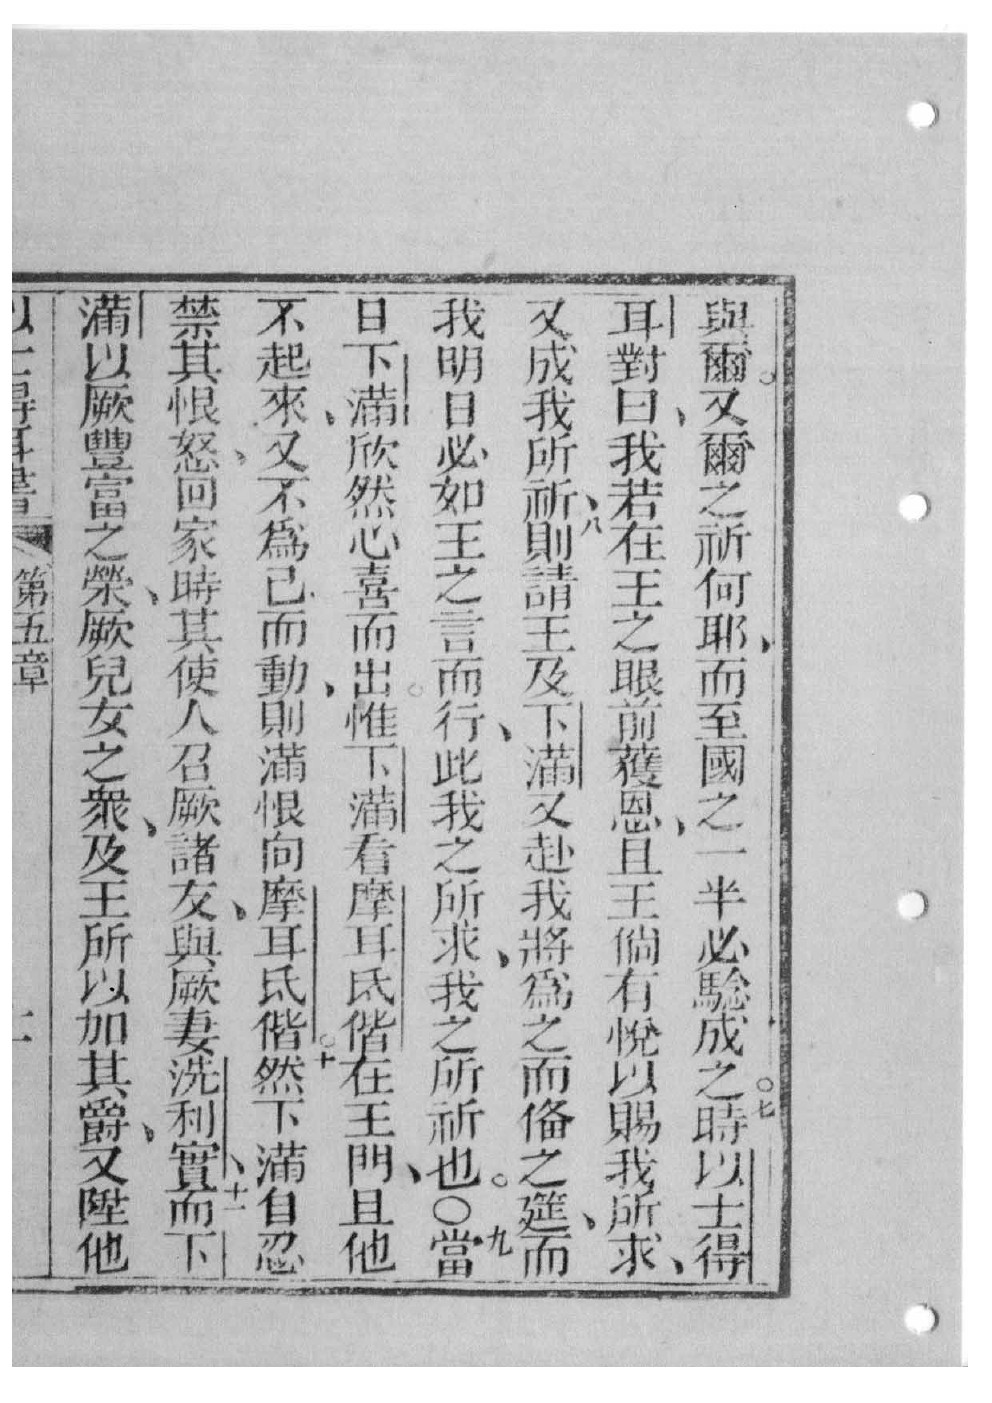 與爾。又爾之祈何耶、而至國之一半必騐成之。七時以士得
耳對曰、我若在王之眼前獲恩、且王倘有悅以賜我所求、
又成我所祈、八則請王及下滿又赴我將爲之而俻之筵、而
我明日必如王之言而行、此我之所求、我之所祈也。○九當
日下滿欣然心喜而出。惟下滿看摩耳氏偕在王門、且他
不起來、又不爲己而動、則滿恨向摩耳氏偕。十然下滿自忍
禁其恨怒、回家時其使人召厥諸友、與厥妻洗利實、十一而下
滿以厥豐富之榮、厥兒女之衆、及王所以加其爵、又陞他
以士得耳書 第五章 二